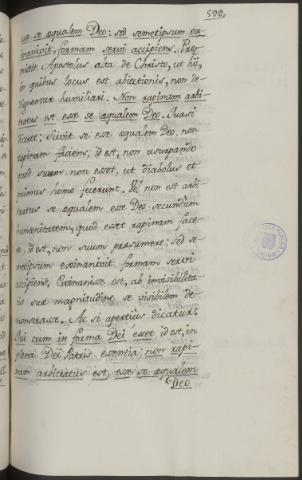 599.
se se æqualem Deo: sed semetipsum ex-
inanivit, formam servi accipiens. Præ-
mittit Apostolus alta de Christo, ut hi,
in quibus locus est abiectionis, non de-
dignentur humiliari. Non rapinam arbi-
tratus est esse se æqualem Deo. Quasi
diceret: Scivit se esse æqualem Deo, non
rapinam faciens, id est, non usurpando
quod suum non esset, ut diabolus et
primus homo fecerunt. Vel non est arbi-
tratus se æqualem esse Deo secundum
humanitatem, quod esset rapinam face-
re, id est, non suum præsumere; sed se-
metipsum exinanivit formam servi
accipiens. Exinanisse est, ab invisibilita-
te suæ magnitudinis se visibilem de-
monstrasse. Ac si apertius dicatur:
Qui cum in forma Dei esset id est, in
plena Dei Patris essentia; non rapi-
nam arbitratus est, esse se æqualem
Deo